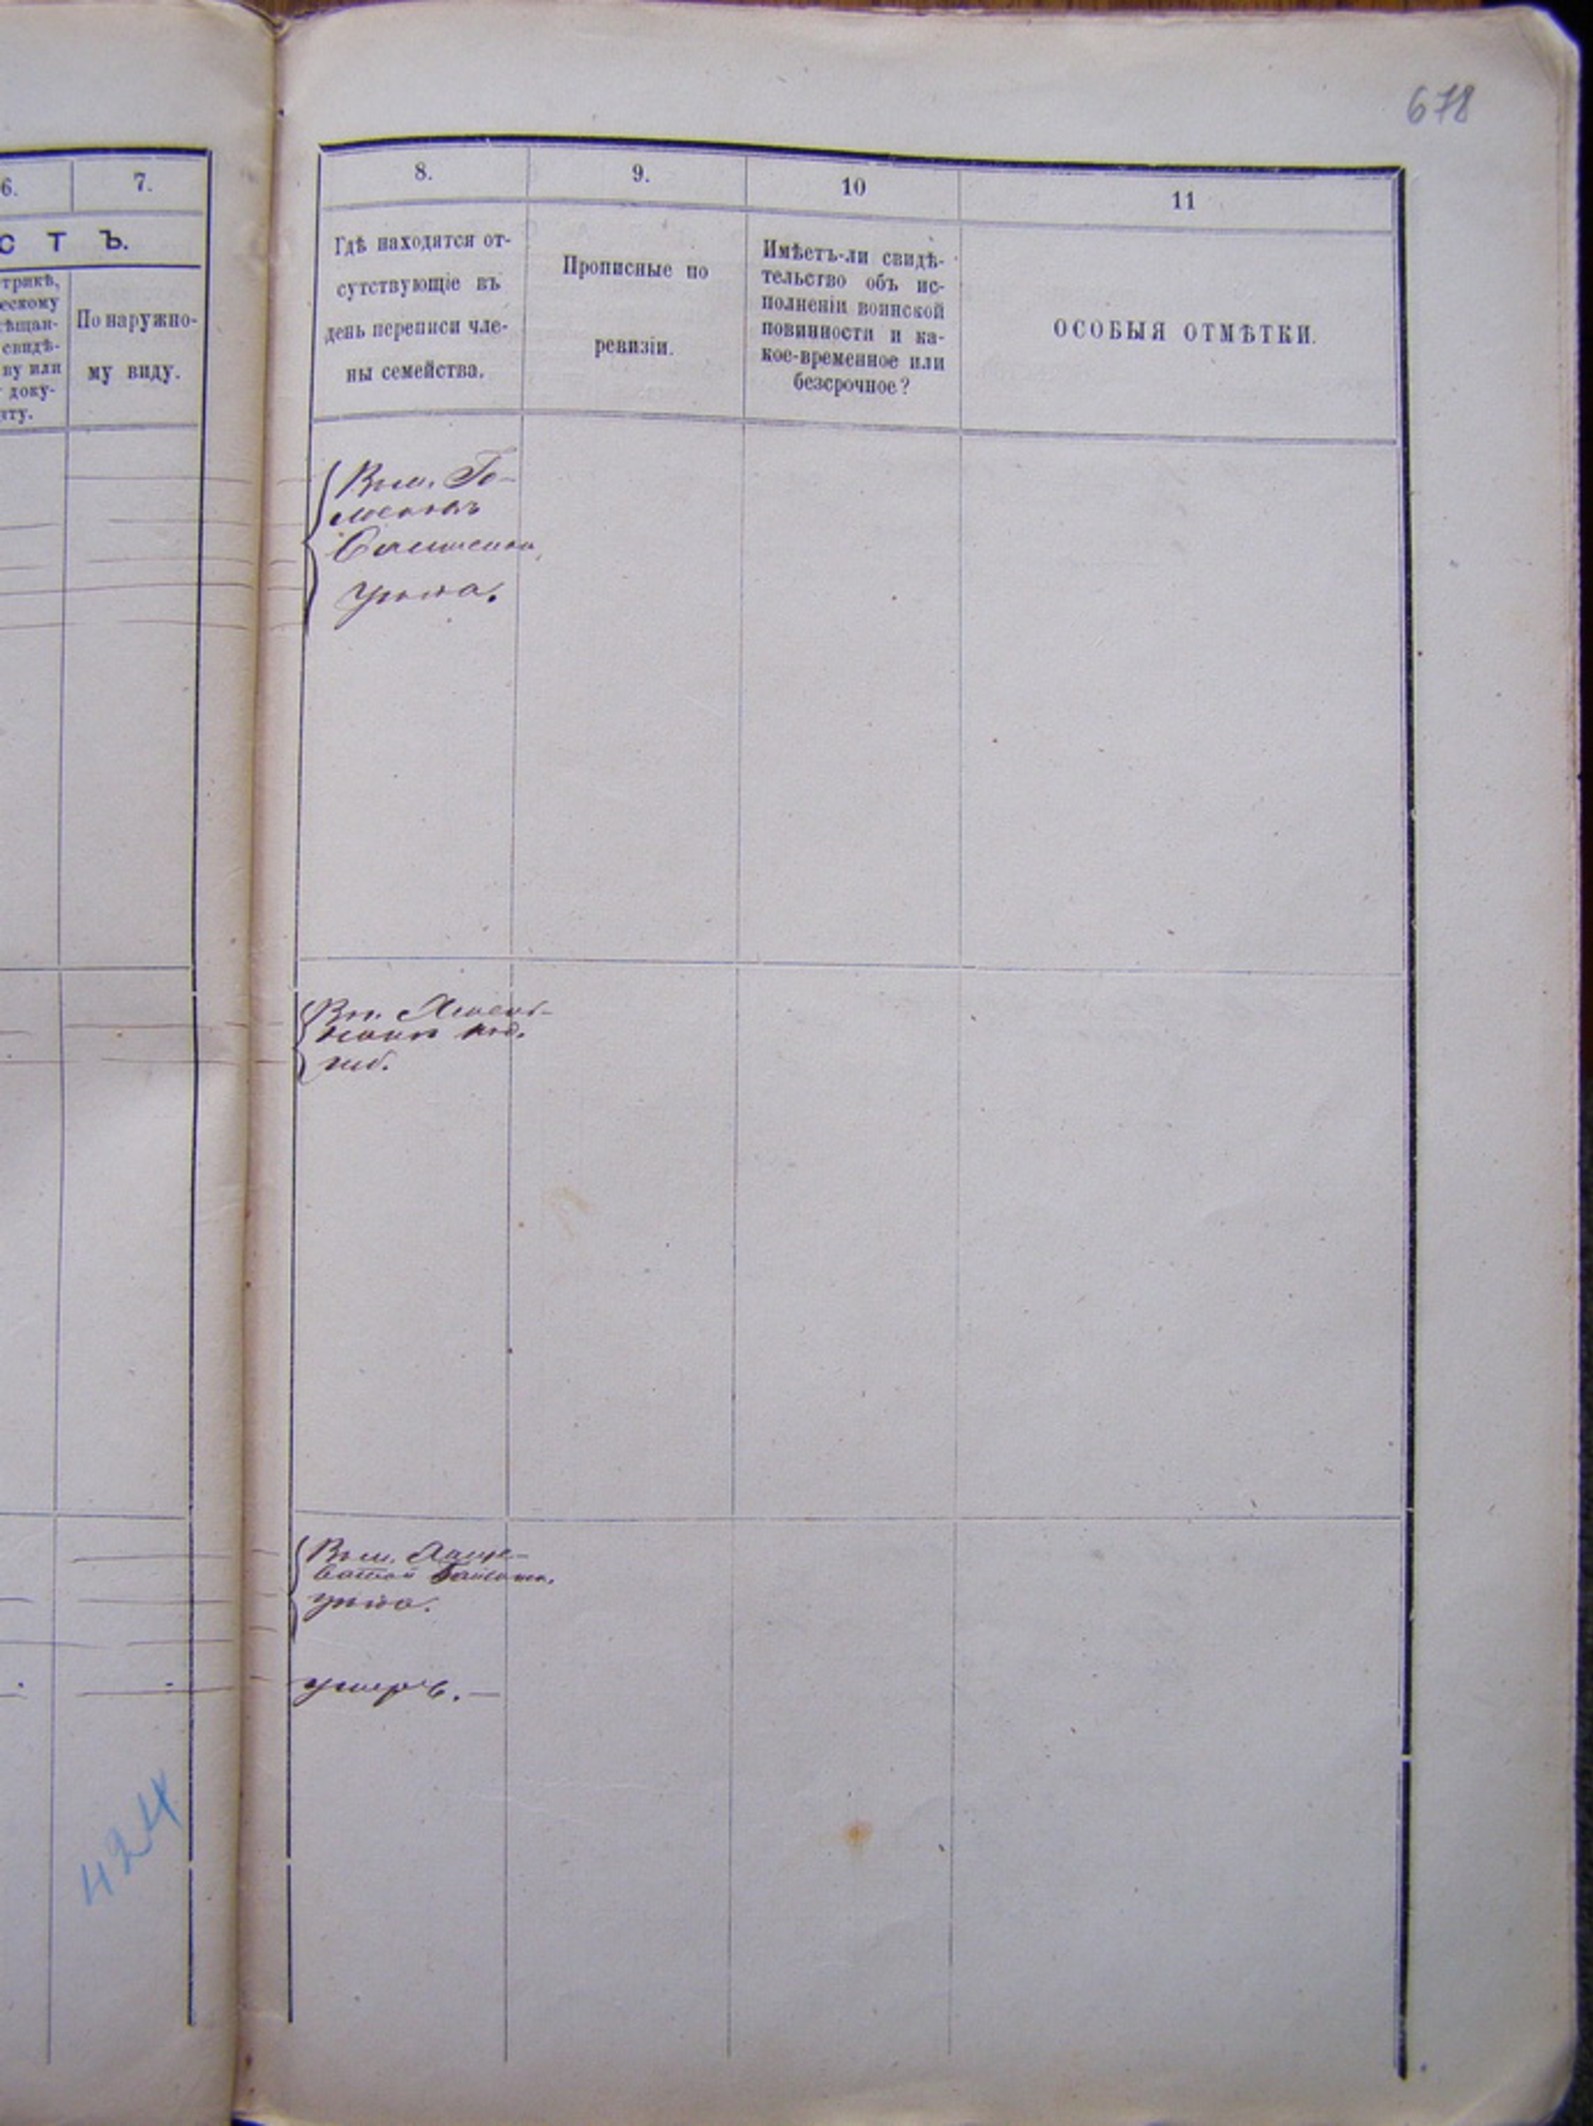 678
6.
7.
8.
9.
10
11
СТЪ.
трикѣ,
ческому
ѣщан-
свидѣ-
ву или
доку-
нту.
По наружно-
му виду.
Гдѣ находятся от-
сутствующіе въ
день переписи чле-
ны семейства.
Прописные по
ревизіи.
Имѣетъ-ли свидѣ-
тельство объ ис-
полненіи воинской
повинности и ка-
кое-временное или
безсрочное?
ОСОБЫЯ ОТМѢТКИ.
Въ м.
уѣзда.
Въ м.
уѣзда.
умеръ. —
424